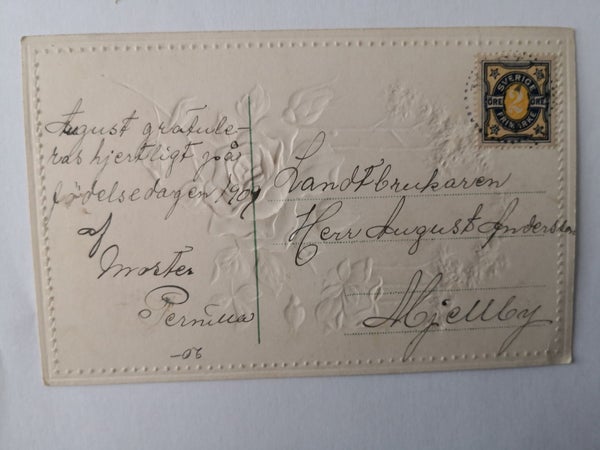 August gratule-
ras hjertligt på
födelsedagen 1909
af
Moster
Pernilla
-06
SVERIGE
ÖRE 2 ÖRE
FRIMÄRKE
Landtbrukaren
Herr August Andersson
Mjellby